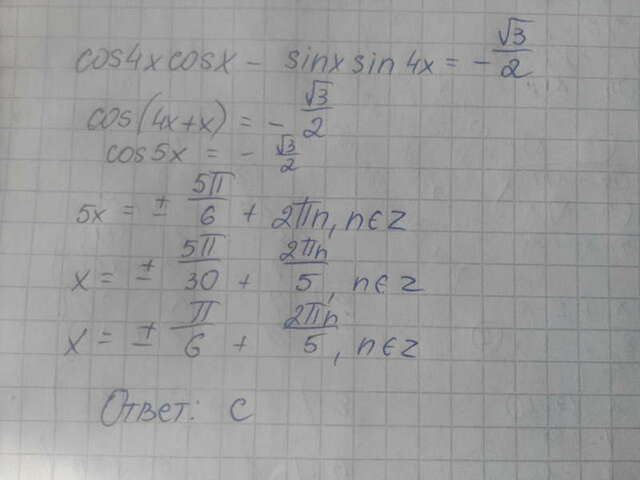 cos4x cosx - sinx sin 4x = - √3/2
cos(4x+x) = - √3/2
cos 5x = - √3/2
5x = ± 5π/6 + 2πn, n∈z
x = ± 5π/30 + 2πn/5, n∈z
x = ± π/6 + 2πn/5, n∈z
Ответ: с